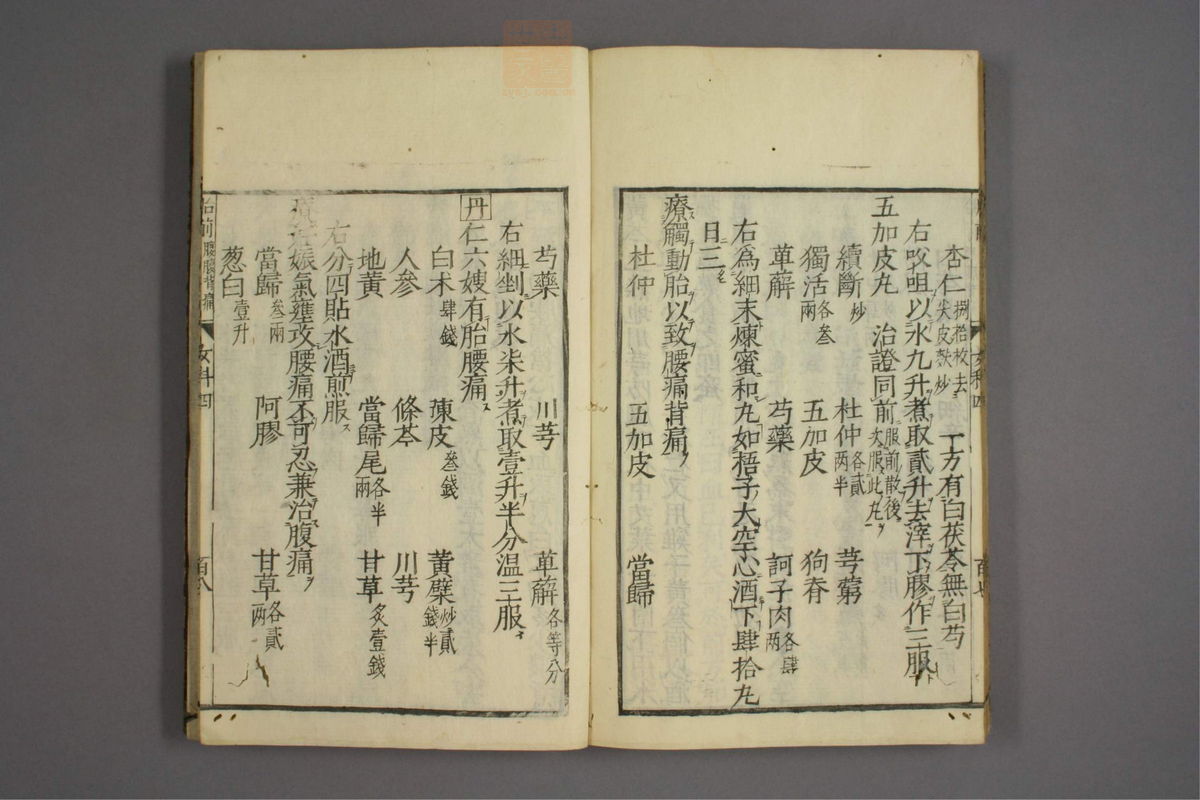 杏仁捌拾枚去尖皮麩炒 一方有白茯苓無白芍
右㕮咀以水九升煮取貳升去滓下膠作三服
五加皮丸 治證同前服前散後次服此丸
續斷炒 杜仲各貳两半 芎藭
獨活各叁兩 五加皮 狗脊
萆薢 芍藥 訶子肉各肆两
右爲細末煉蜜和丸如梧子大空心酒下肆拾丸
日三
療觸動胎以致腰痛背痛
杜仲 五加皮 當歸
芍藥 川芎 萆薢各等分
右細剉以水柒升煮取壹升半分温三服
丹仁六嫂有胎腰痛
白术肆錢 陳皮叁錢 黃蘗炒貳錢半
人參 條芩 川芎
地黃 當歸尾各半兩 甘草炙壹錢
右分四貼水酒煎服
娠氣壅攻腰痛不可忍兼治腹痛
當歸叁兩 阿膠 甘草各貳两
葱白壹升
胎前 腰腹背痛 女科四 百八